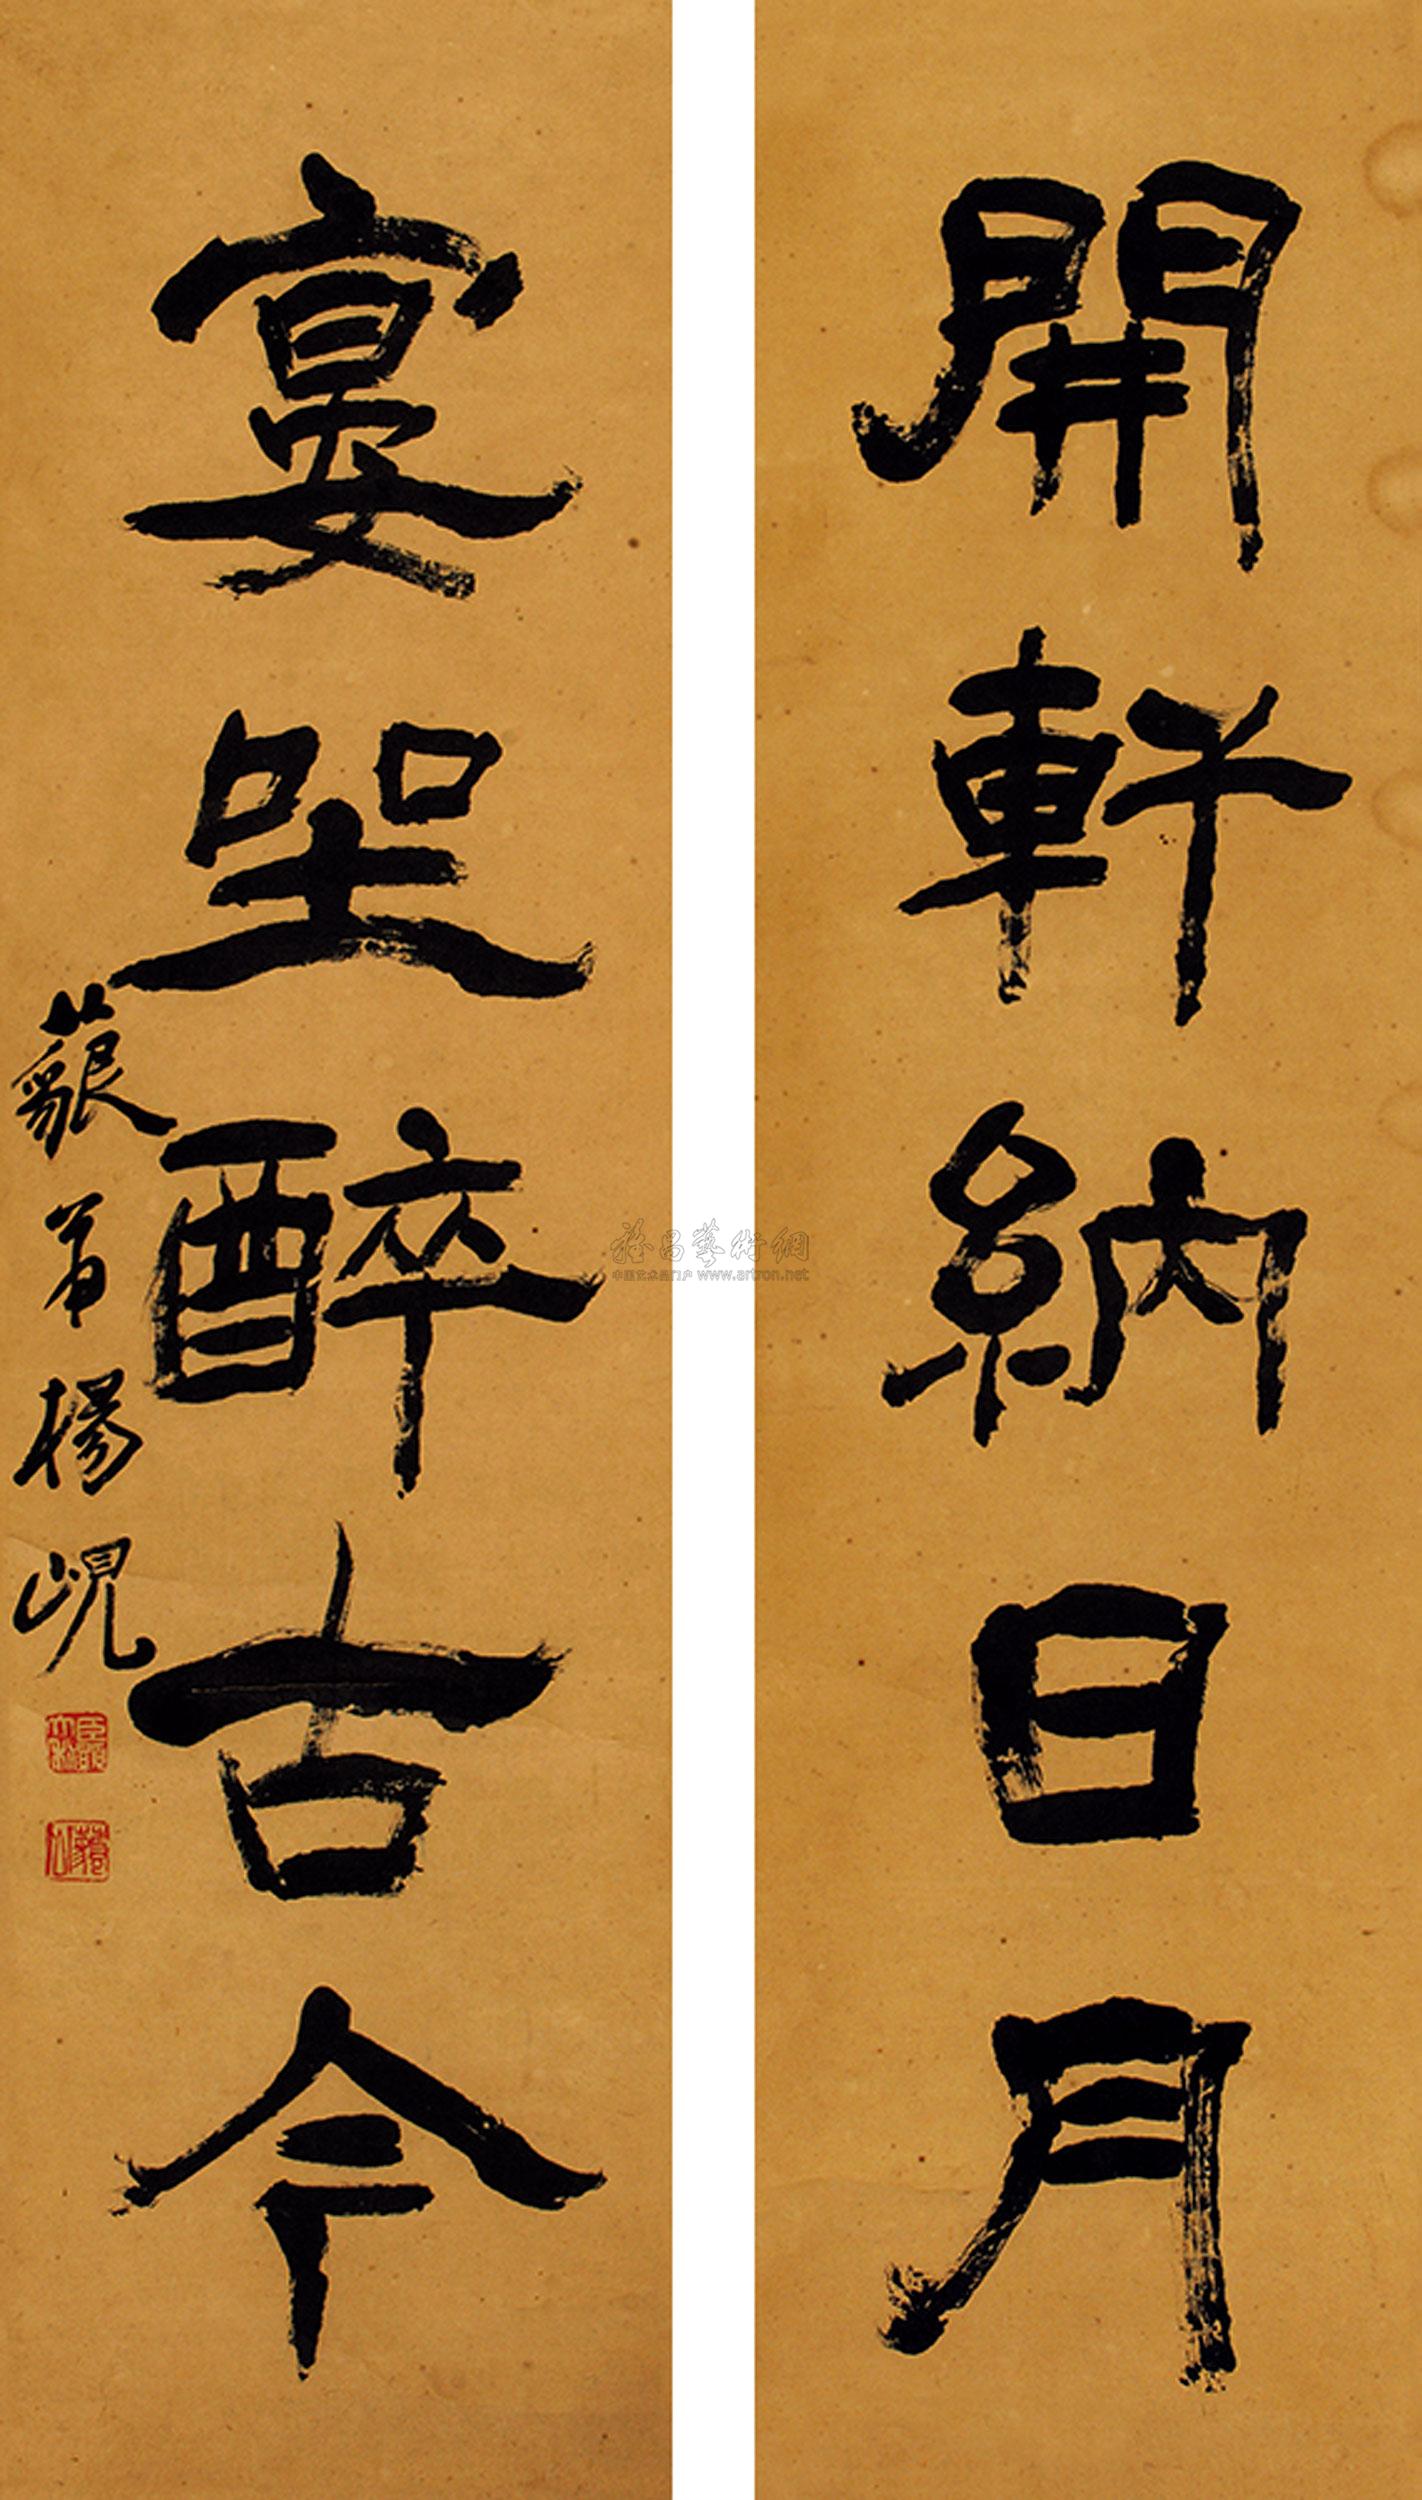 開軒納日月
宴坐醉古今
藐翁楊峴
雅昌藝術網
中国艺术品门户 www.artron.net